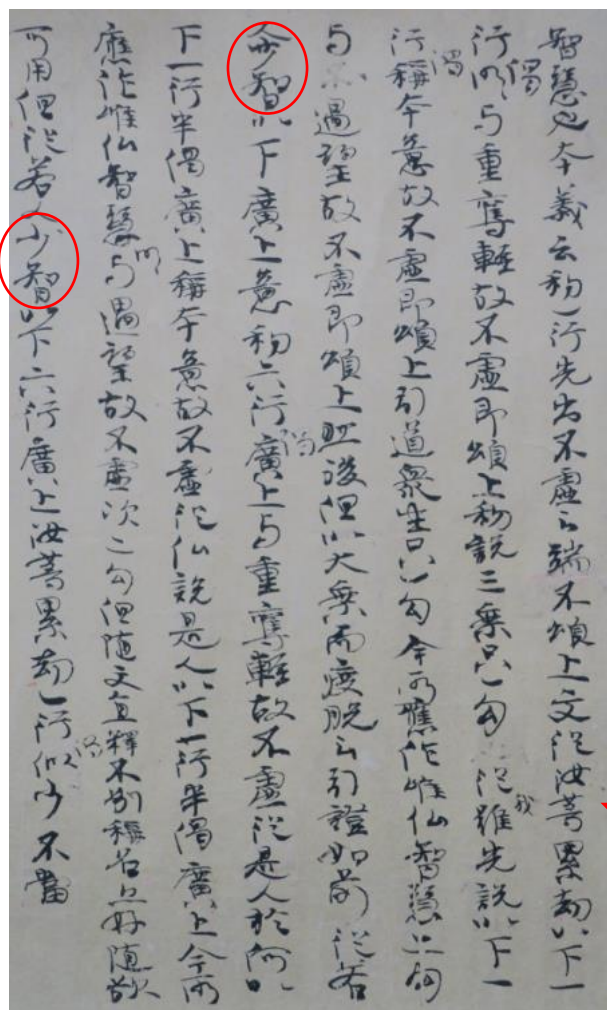 智慧也本義云初一行先出不虛之端不頌上文從汝等累劫以下一
行偈明与重奪輕故不虛即頌上初說三乘只一句從我雖先說以下一
行偈稱本意故不虛即頌上引道衆生只一句今所應作唯仏智慧二句
与過望故不虛即頌上後但以大乘而度脫之引證如前從若
人少智以下廣上意初六行偈廣上与重奪輕故不虛從是人於何以
下一行半偈廣上稱本意故不虛從仏說是人以下一行半偈廣上今所
應作唯仏智慧明与過望故不虛次二句但随文直釋不別稱名亦好随欲
可用但從若人少智以下六行偈廣上汝等累劫一行似少不當